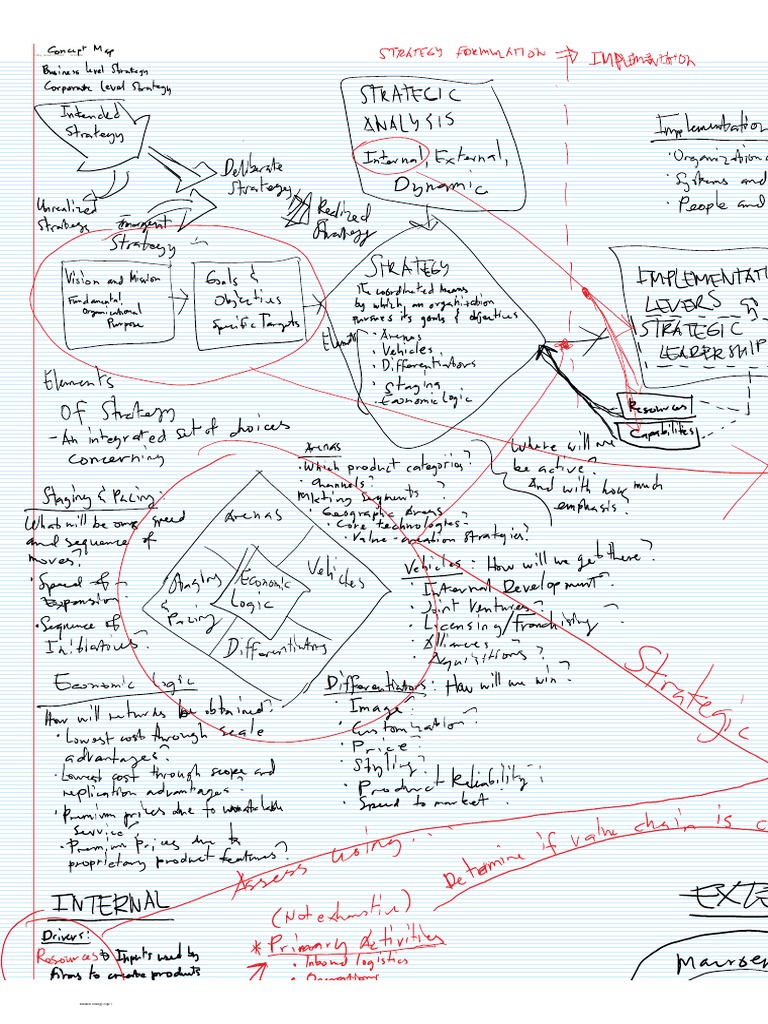 Concept Map
Business level Strategy
Corporate Level Strategy
STRATEGY FORMULATION ⇒ IMPLEMENTATION
Intended
Strategy
Deliberate
Strategy
Unrealized
Strategy
Emergent
Strategy
Realized
Strategy
STRATEGIC
ANALYSIS
Internal, External,
Dynamic
Implementation
· Organization
· Systems and
· People and
Vision and Mission
Fundamental
Organizational
Purpose
Goals &
Objectives
Specific Targets
STRATEGY
The coordinated means
by which an organization
pursues its goals & objectives
Elements
· Arenas
· Vehicles
· Differentiators
· Staging
· Economic Logic
IMPLEMENTATI
LEVERS &
STRATEGIC
LEADERSHIP
Resources
Capabilities
Elements
Of Strategy
- An integrated set of choices
concerning
Arenas
· Which product categories?
· Channels?
· Mkting Segments?
· Geographic Areas
· Core technologies?
· Value-creation strategies?
Where will we
be active?
And with how much
emphasis.
Staging & Pacing:
What will be our speed
and sequence of
moves?
· Speed of
Expansion
· Sequence of
Initiatives?
Arenas
Staging
&
Pacing
Economic
Logic
Vehicles
Differentiators
Vehicles: How will we get there?
Internal Development?
· Joint Ventures?
· Licensing/Franchising
· Alliances?
· Aquisitions?
Economic Logic
How will returns be obtained?
· Lowest cost through scale
advantages?
· Lowest cost through scope and
replication advantages?
· Premium prices due to
service
· Premium Prices due to
proprietary product features?
Differentiators: How will we win?
Image?
· Customization?
· Price?
· Styling?
· Product Reliability?
· Speed to market?
Strategic
Assess using...
Determine if value chain is c
INTERNAL
Drivers:
Resources: Inputs used by
firms to create products
(Not exhaustive)
* Primary Activities
· Inbound logistics
· Operations
EXTE
Macroen